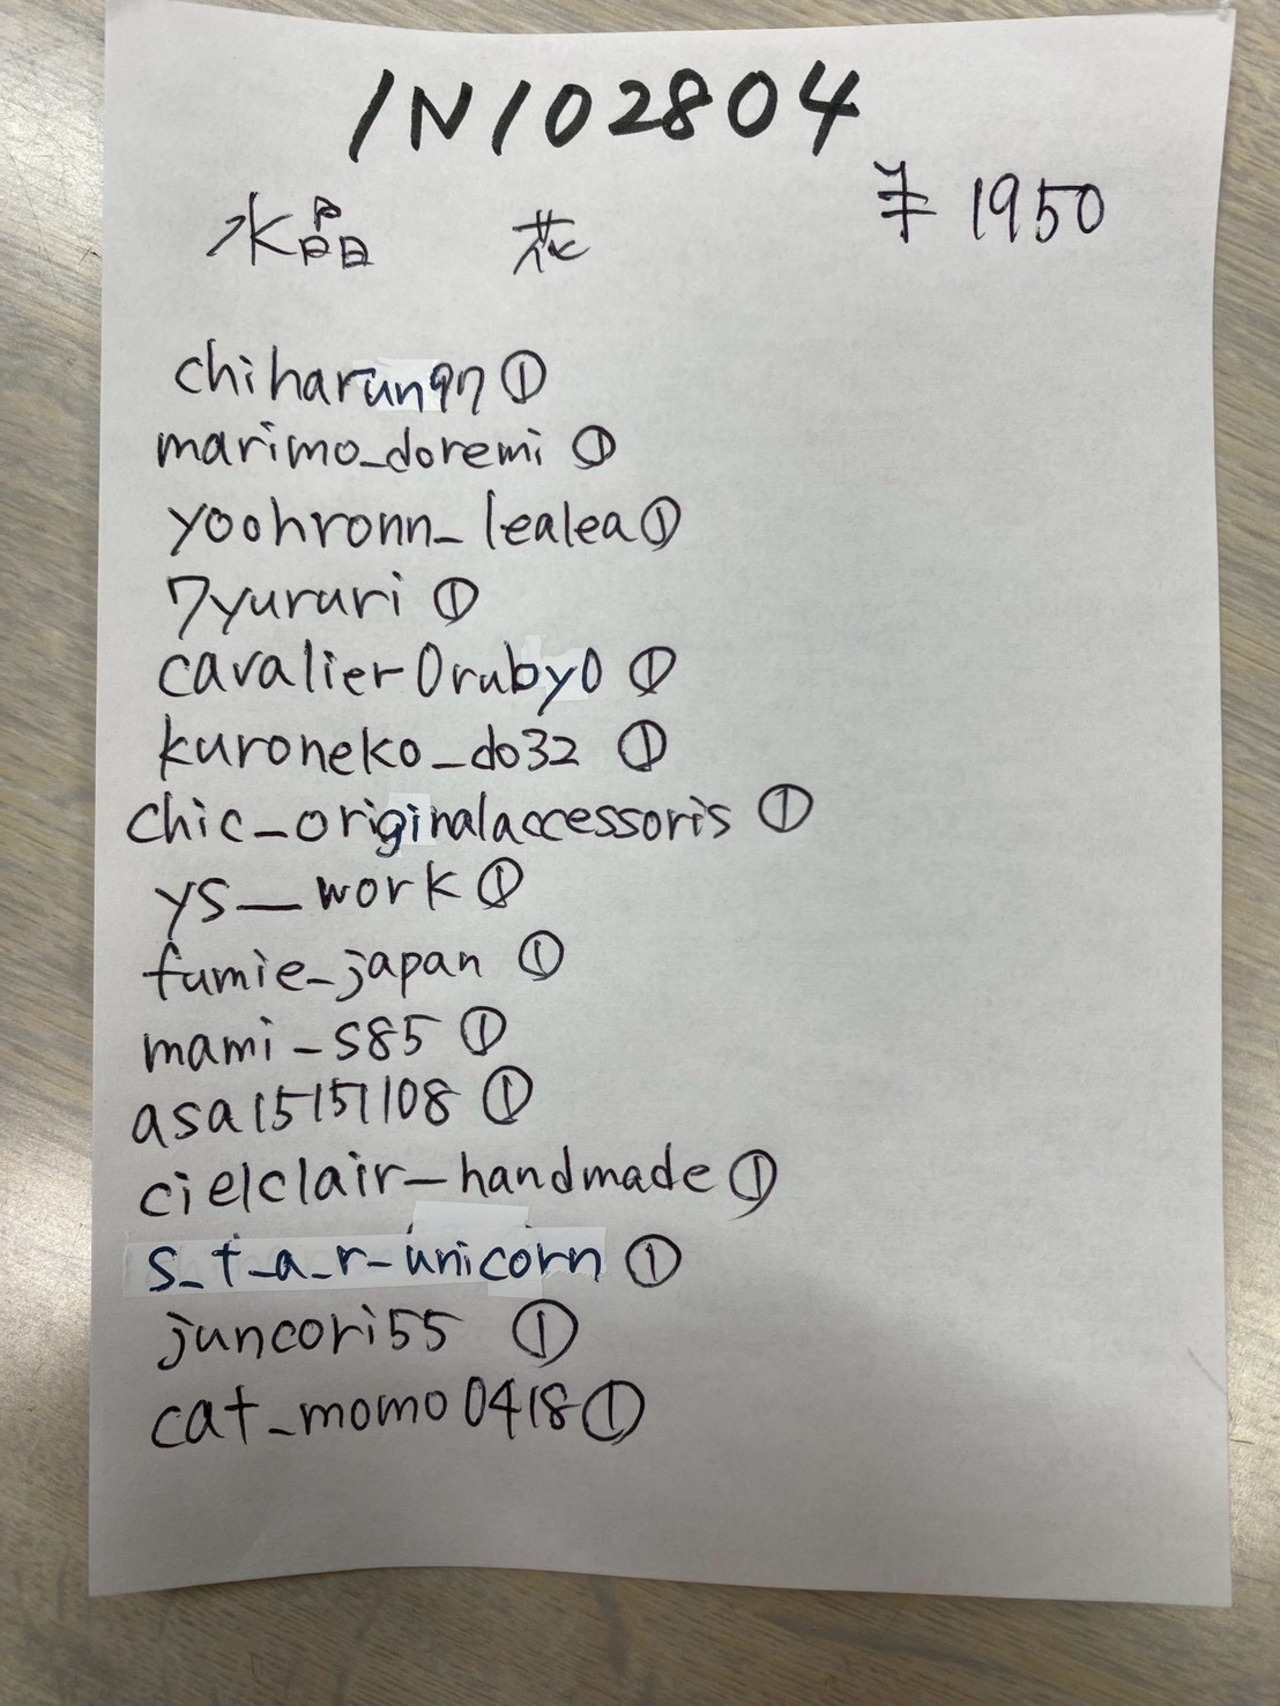 IN102804
水晶 花 ¥1950
chiharun97①
marimo_doremi①
yoohronn_lealea①
7yururi①
cavalier0ruby0①
kuroneko_do32①
chic_originalaccessoris①
ys__work①
fumie_japan①
mami_s85①
asa15151108①
cielclair_handmade①
s_t_a_r_unicorn①
juncori55①
cat_momo0418①